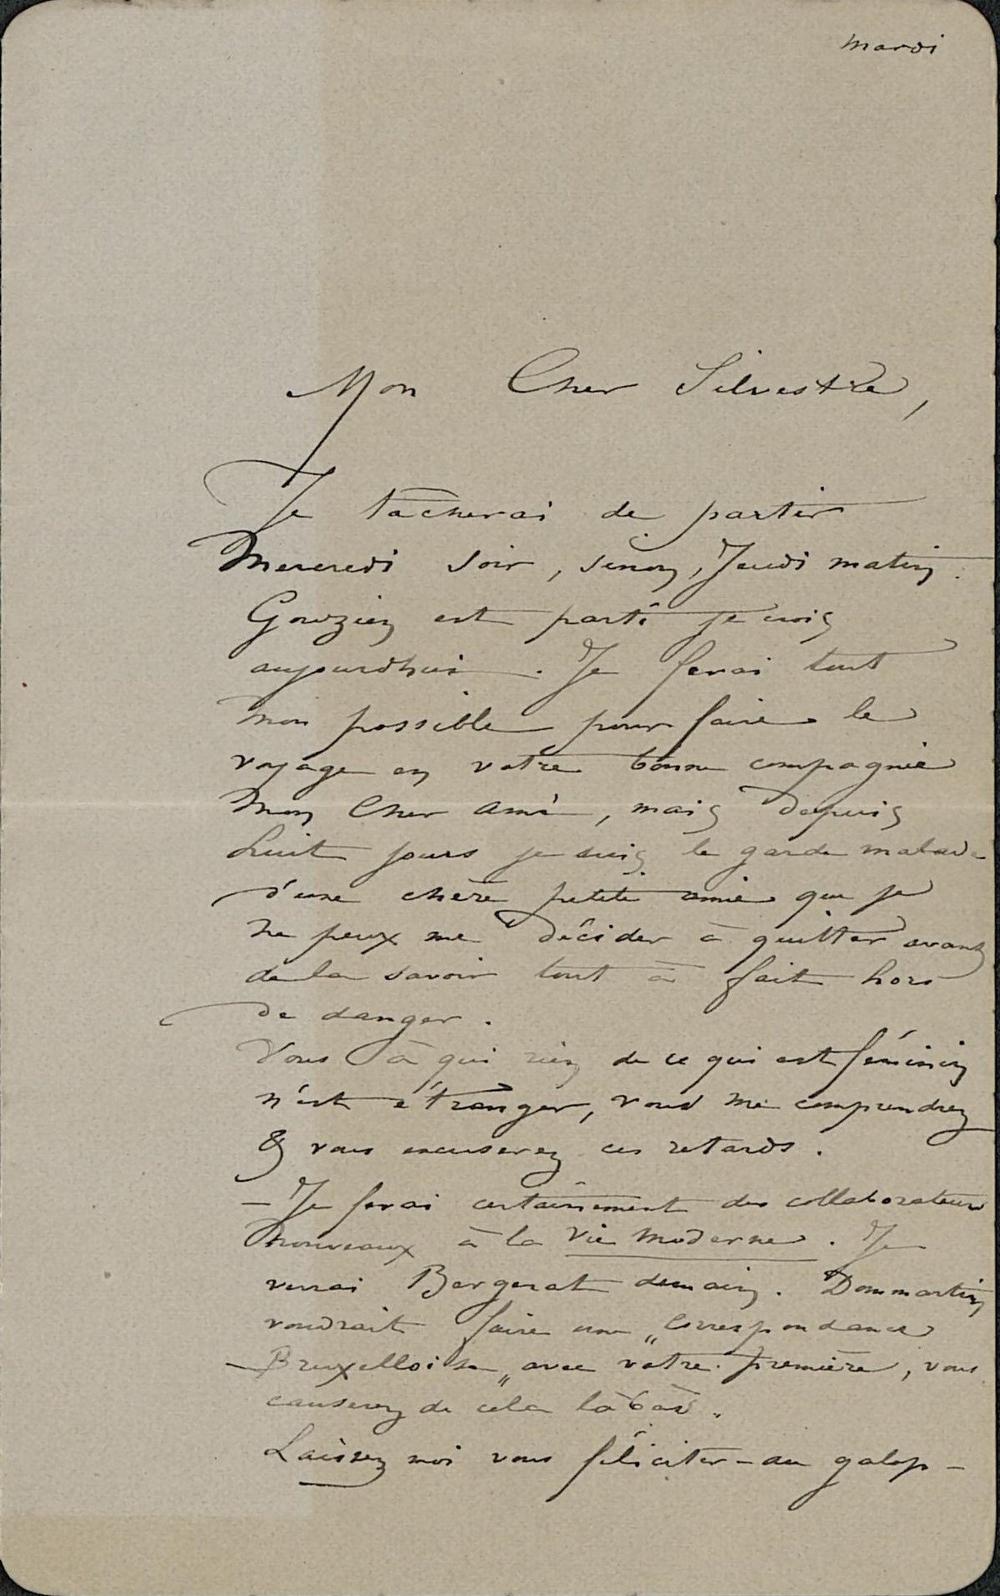 Mardi
Mon Cher Silvestre,
Je tâcherai de partir
Mercredi soir, sinon, Jeudi matin.
Gouzien est parti je crois
aujourdhui. Je ferai tout
mon possible pour faire le
voyage en votre bonne compagnie
Mon Cher Ami, mais depuis
huit jours je suis le garde malade
d'une chère petite amie que je
ne peux me décider à quitter avant
de la savoir tout à fait hors
de danger.
Vous à qui rien de ce qui est féminin
n'est étranger, vous me comprendrez
& vous excuserez ces retards.
– Je ferai certainement des collaborateurs
nouveaux à la Vie Moderne. Je
verrai Bergerat demain. Dommartin
voudrait faire une „Correspondance
Bruxelloise„ avec votre première, vous
causerez de cela làbas.
Laissez moi vous féliciter – au galop –